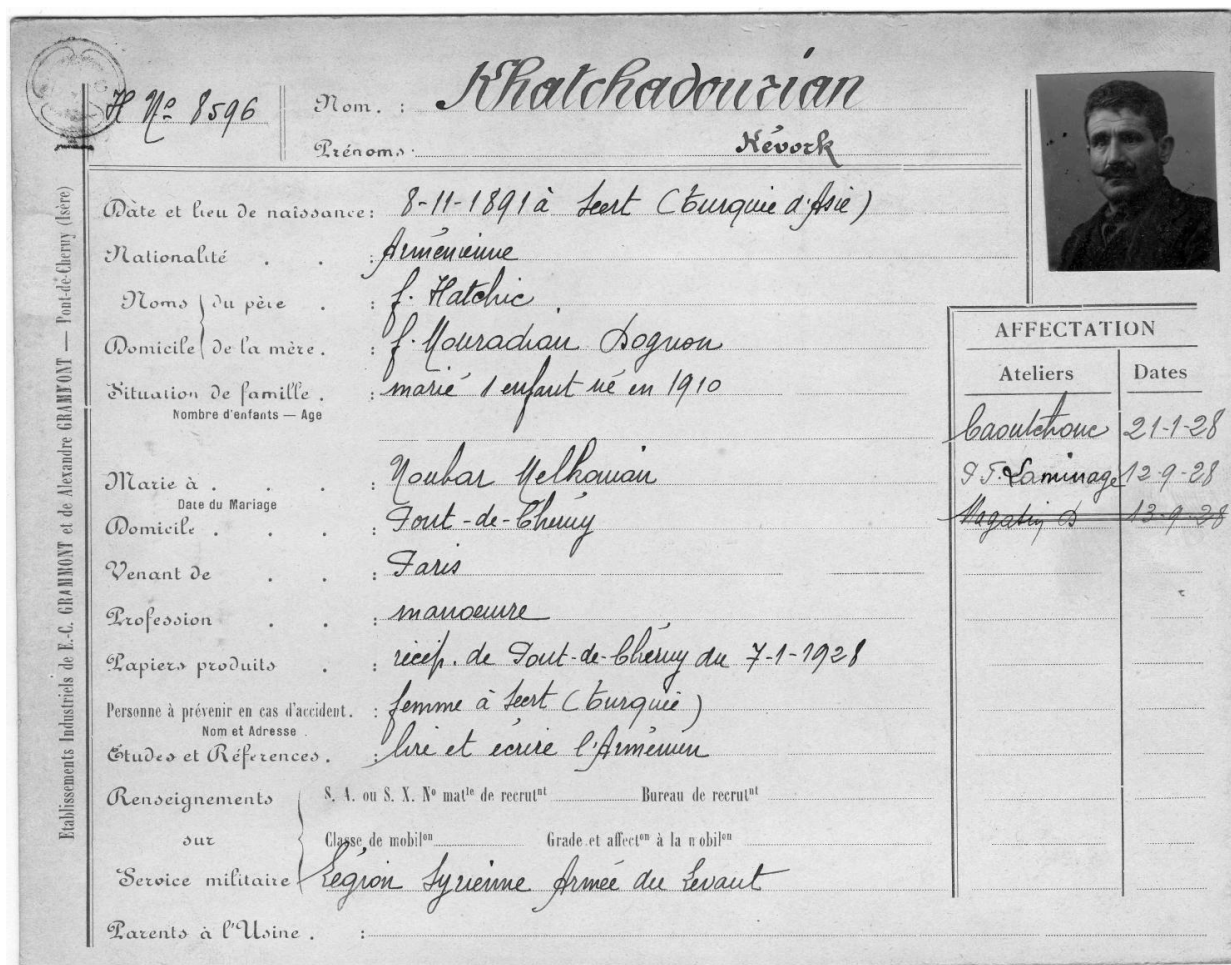 H Nº 8596
Nom. : Khatchadourian
Prénoms. Kévork
Etablissements Industriels de E.-C. GRAMMONT et de Alexandre GRAMMONT — Pont-de-Cheruy (Isère)
Date et lieu de naissance : 8-11-1891 à Seert (Turquie d'Asie)
Nationalité . . : Arménienne
Noms du père . : f. Hatchic
Domicile de la mère . : f. Mouradian Dognon
Situation de famille . : marié 1 enfant né en 1910
Nombre d'enfants — Age
Marié à . . . : Noubar Melkonian
Date du Mariage
Domicile . . . : Pont-de-Chéruy
Venant de . . : Paris
Profession . . : manoeuvre
Papiers produits . : récép. de Pont-de-Chéruy du 7-1-1928
Personne à prévenir en cas d'accident. : femme à Seert (Turquie)
Nom et Adresse .
Etudes et Réferences . : lire et écrire l'Arménien
Renseignements sur Service militaire
S. A. ou S. X. Nº matle de recrutnt Bureau de recrutnt
Classe de mobilon Grade et affecton à la mobilon
Légion Syrienne Armée du Levant
Parents à l'Usine . :
AFFECTATION
Ateliers Dates
Caoutchouc 21-1-28
P.T. Laminage 12-9-28
Magasin D 13-9-28